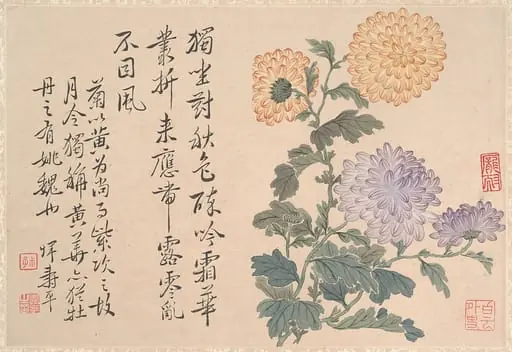 獨坐對秋色醉吟霜華
叢折来應帶露零亂
不因風
菊以黃為尚而紫次之故
月令獨稱黃華亦猶牡
丹之有姚魏也 惲壽平
白雲外史